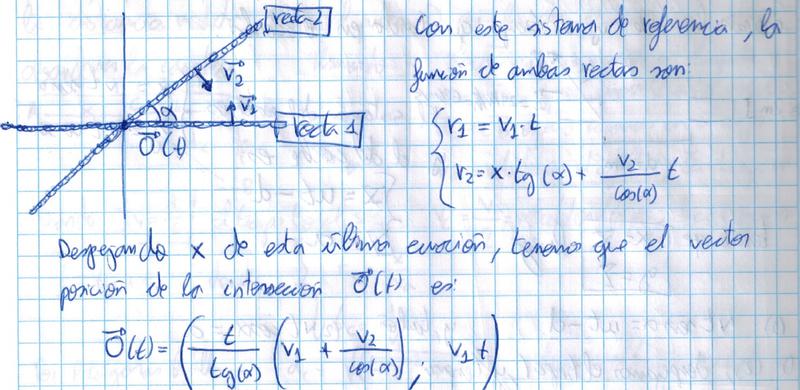 recta 2
Con este sistema de referencia, la
función de ambas rectas son:
v⃗₂
α
v⃗₁
recta 1
O⃗(t)
{ r₁ = v₁·t
r₂ = x·tg(α) + v₂/cos(α) t
Despejando x de esta última ecuación, tenemos que el vector
posición de la intersección O⃗(t) es:
O⃗(t) = ( t/tg(α) ( v₁ + v₂/cos(α) ) ; v₁ t )